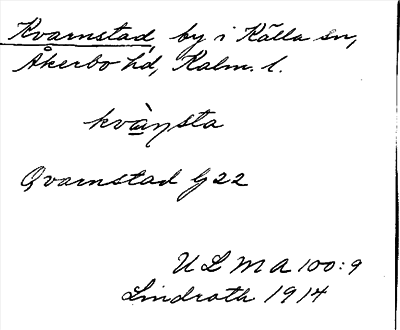 Kvarnstad, by i Källa sn,
Åkerbo hd, Kalm. l.
kvàṇsta
Qvarnstad G 22
ULMA 100:9
Lindroth 1914